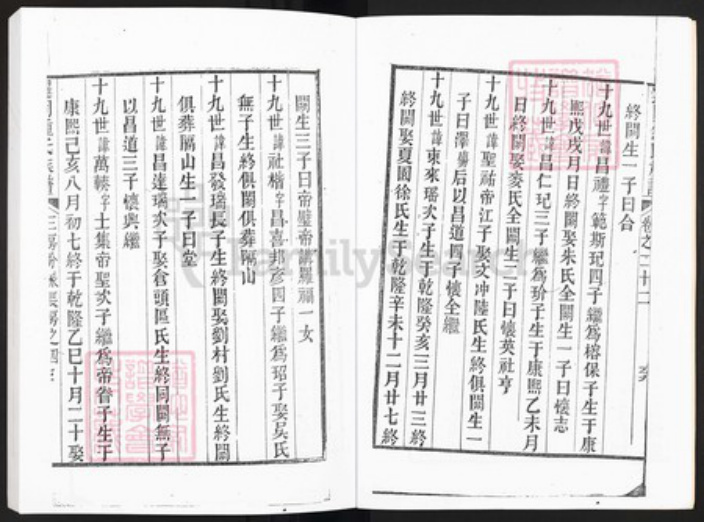 終闕生一子曰合
十九世諱昌禮字範斯玘四子繼爲榕保子生于康
熙戊戌月日終闕娶朱氏全闕生一子曰懷志
十九世諱昌仁玘三子繼爲玠子生于康熙乙未月
日終闕娶麥氏全闕生二子曰懷英社亨
十九世諱聖祐帝江子娶文冲陸氏生終俱闕生一
子曰澤 后以昌道四子懷全繼
十九世諱東來璠次子生于乾隆癸亥三月廿三終
終闕娶夏園徐氏生于乾隆辛未十二月廿七終
卷之二十二
闕生三子曰帝璧帝 羅福一女
十九世諱社楷字昌喜邦彥四子繼爲玿子娶吳氏
無子生終俱闕俱葬 山
十九世諱昌發璚長子生終闕娶劉村劉氏生終闕
俱葬 山生一子曰堂
十九世諱昌達璚次子娶倉頭區氏生終同闕無子
以昌道三子懷興繼
十九世諱萬 字士集帝聖次子繼爲帝眷子生于
康熙己亥八月初七終于乾隆乙巳十月二十娶
FamilySearch